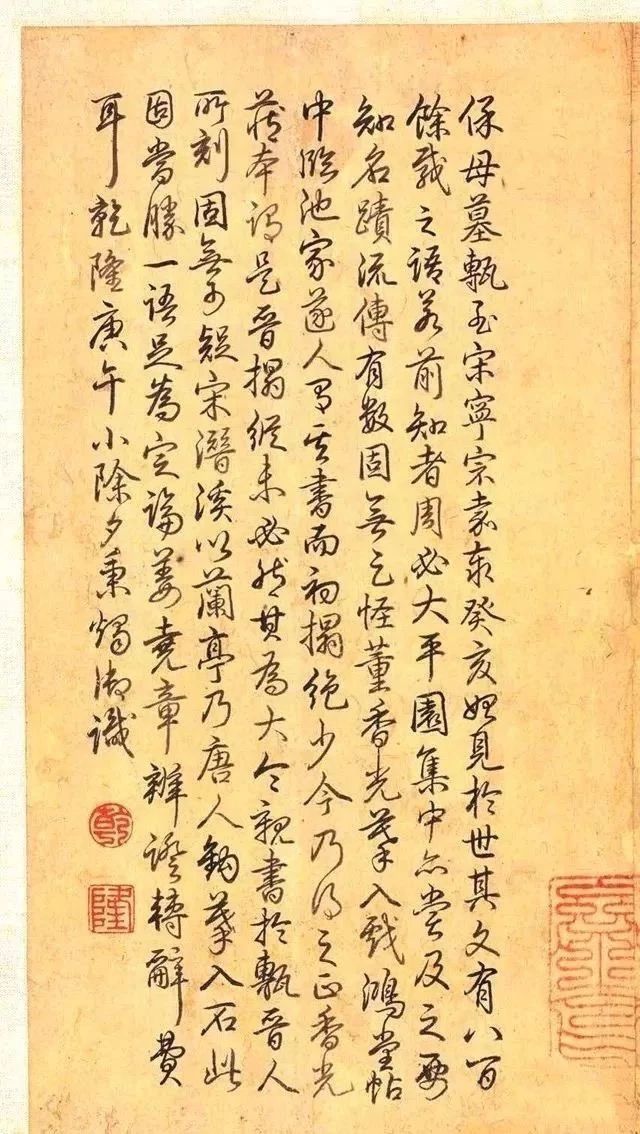 保母墓甎至宋寧宗嘉泰癸亥始見於世其文有八百
餘載之語若前知者周必大平園集中亦嘗及之要
知名蹟流傳有數固無乞怪董香光摹入戲鴻堂帖
中臨池家遂人有其書而初搨絕少今乃得之正香光
藏本謂是晉搨縱未必然其為大令親書於甎晉人
所刻固無可疑宋潛溪以蘭亭乃唐人鉤摹入石此
固當勝一語足為定論姜堯章辨證轉辭費
耳乾隆庚午小除夕秉燭御識
乾
隆